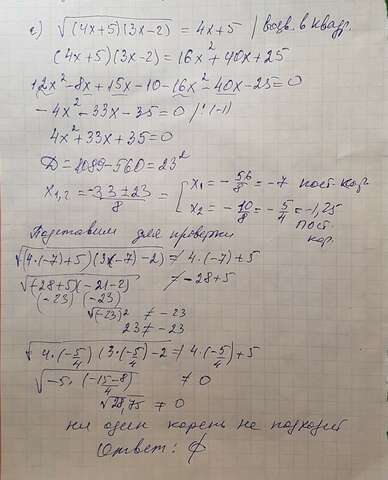 с) √(4x+5)(3x-2) = 4x+5 | возв. в квадр.
(4x+5)(3x-2) = 16x²+40x+25
12x²-8x+15x-10-16x²-40x-25=0
-4x²-33x-35=0 /:(-1)
4x²+33x+35=0
D=1089-560=23²
x₁,₂ = (-33±23)/8 = [ x₁ = -56/8 = -7 пост. кор.
x₂ = -10/8 = -5/4 = -1,25 пост. кор.
Подставим для проверки
√(4·(-7)+5)(3·(-7)-2) ≠ 4·(-7)+5
√(-28+5)(-21-2) ≠ -28+5
(-23) (-23)
√(-23)² ≠ -23
23 ≠ -23
√4·(-5/4) (3·(-5/4)-2 ≠ 4·(-5/4)+5
√-5·(-15-8/4) ≠ 0
√28,75 ≠ 0
ни один корень не подходит
Ответ: ∅